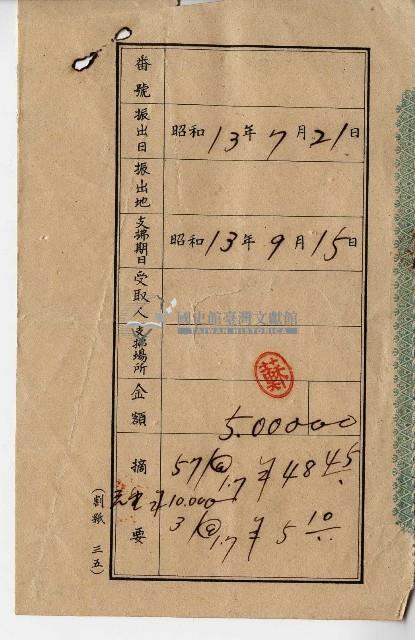 番號
振出日 昭和13年7月21日
振出地
支拂期日 昭和13年9月15日
受取人
國史館臺灣文獻館
TAIWAN HISTORICA
支拂場所
金額 5.00000
摘要
57/@1.7 48 45
10.000
3/@1.7 5 10
(割紙 三五)